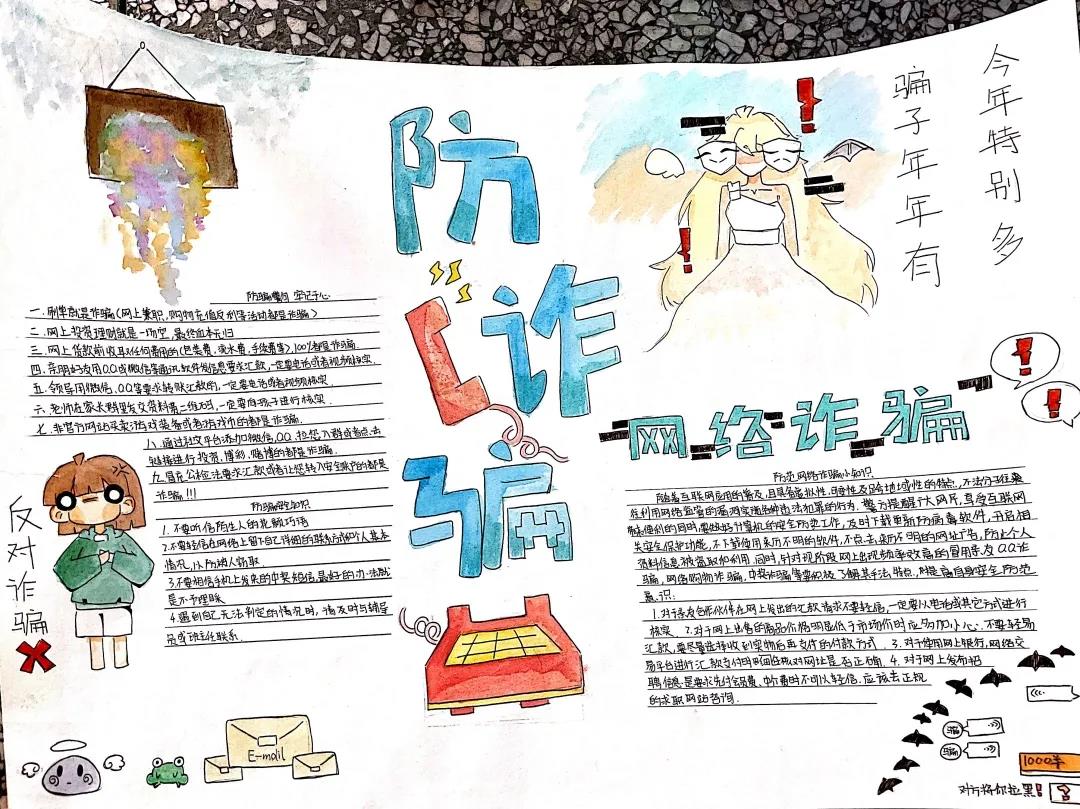 防诈骗
今年特别多
骗子年年有
网络诈骗
防骗警句 牢记于心
一.刷单就是诈骗(网上兼职,购物充值返利等活动都是诈骗)
二.网上投资理财就是一场空,最终血本无归
三.网上贷款前收取任何费用的(包装费,流水费,手续费等),100%都是诈骗
四.亲朋好友用QQ或微信等通讯软件发信息要求汇款,一定要电话或者视频核实.
五.领导用微信、QQ等要求转账汇款的,一定要电话或者视频核实
六.老师在家长群里发交资料费二维码,一定要向孩子进行核实.
七.非官方网站买卖游戏装备或者游戏币的都是诈骗.
八.通过社交平台添加微信,QQ,拉您入群或者点击
链接进行投资,博彩,赌博的都是诈骗.
九.冒充公检法要求汇款或者让您转入安全账户的都是
诈骗!!!
防骗安全知识
1.不要听信陌生人的花言巧语
2.不要轻信在网络上留下自己详细的联系方式和个人基本
情况,以防被人窃取
3.不要相信手机上发来的中奖短信,最好的办法就
是不予理睬
4.遇到自己无法判定的情况时,请及时与辅导
员或班主任联系
反对诈骗
E-mail
防范网络诈骗小知识
随着互联网应用的普及,且具备虚拟性,可匿性及跨地域性的特点,不法分子往
在利用网络监管的漏洞实施各种违法犯罪的行为.警方提醒广大网民,享受互联网
便利的同时,要做好计算机的安全防范工作,及时下载更新防病毒软件,开启相
关安全保护功能,不下载使用来历不明的软件,不点击来历不明的网址广告,防止个人
资料信息被盗取和利用.同时,针对现阶段网上出现频率较高的冒用亲友QQ诈
骗,网络购物诈骗,中奖诈骗等要积极了解其手法特点,提高自身安全防范
意识:
1.对于亲友合作伙伴在网上发出的汇款请求不要轻信,一定要以电话或其它方式进行
核实.2.对于网上出售的商品价格明显低于市场价时应多加小心,不要轻易
汇款,要尽量选择收到实物后再支付的付款方式.3.对于使用网上银行,网络交
易平台进行汇款支付时要仔细核对网址是否正确.4.对于网上发布招
聘信息是要求先付会员费、中介费时不可以轻信.应该去正规
的求职网站咨询.
骗
骗
1000羊
对方将你拉黑